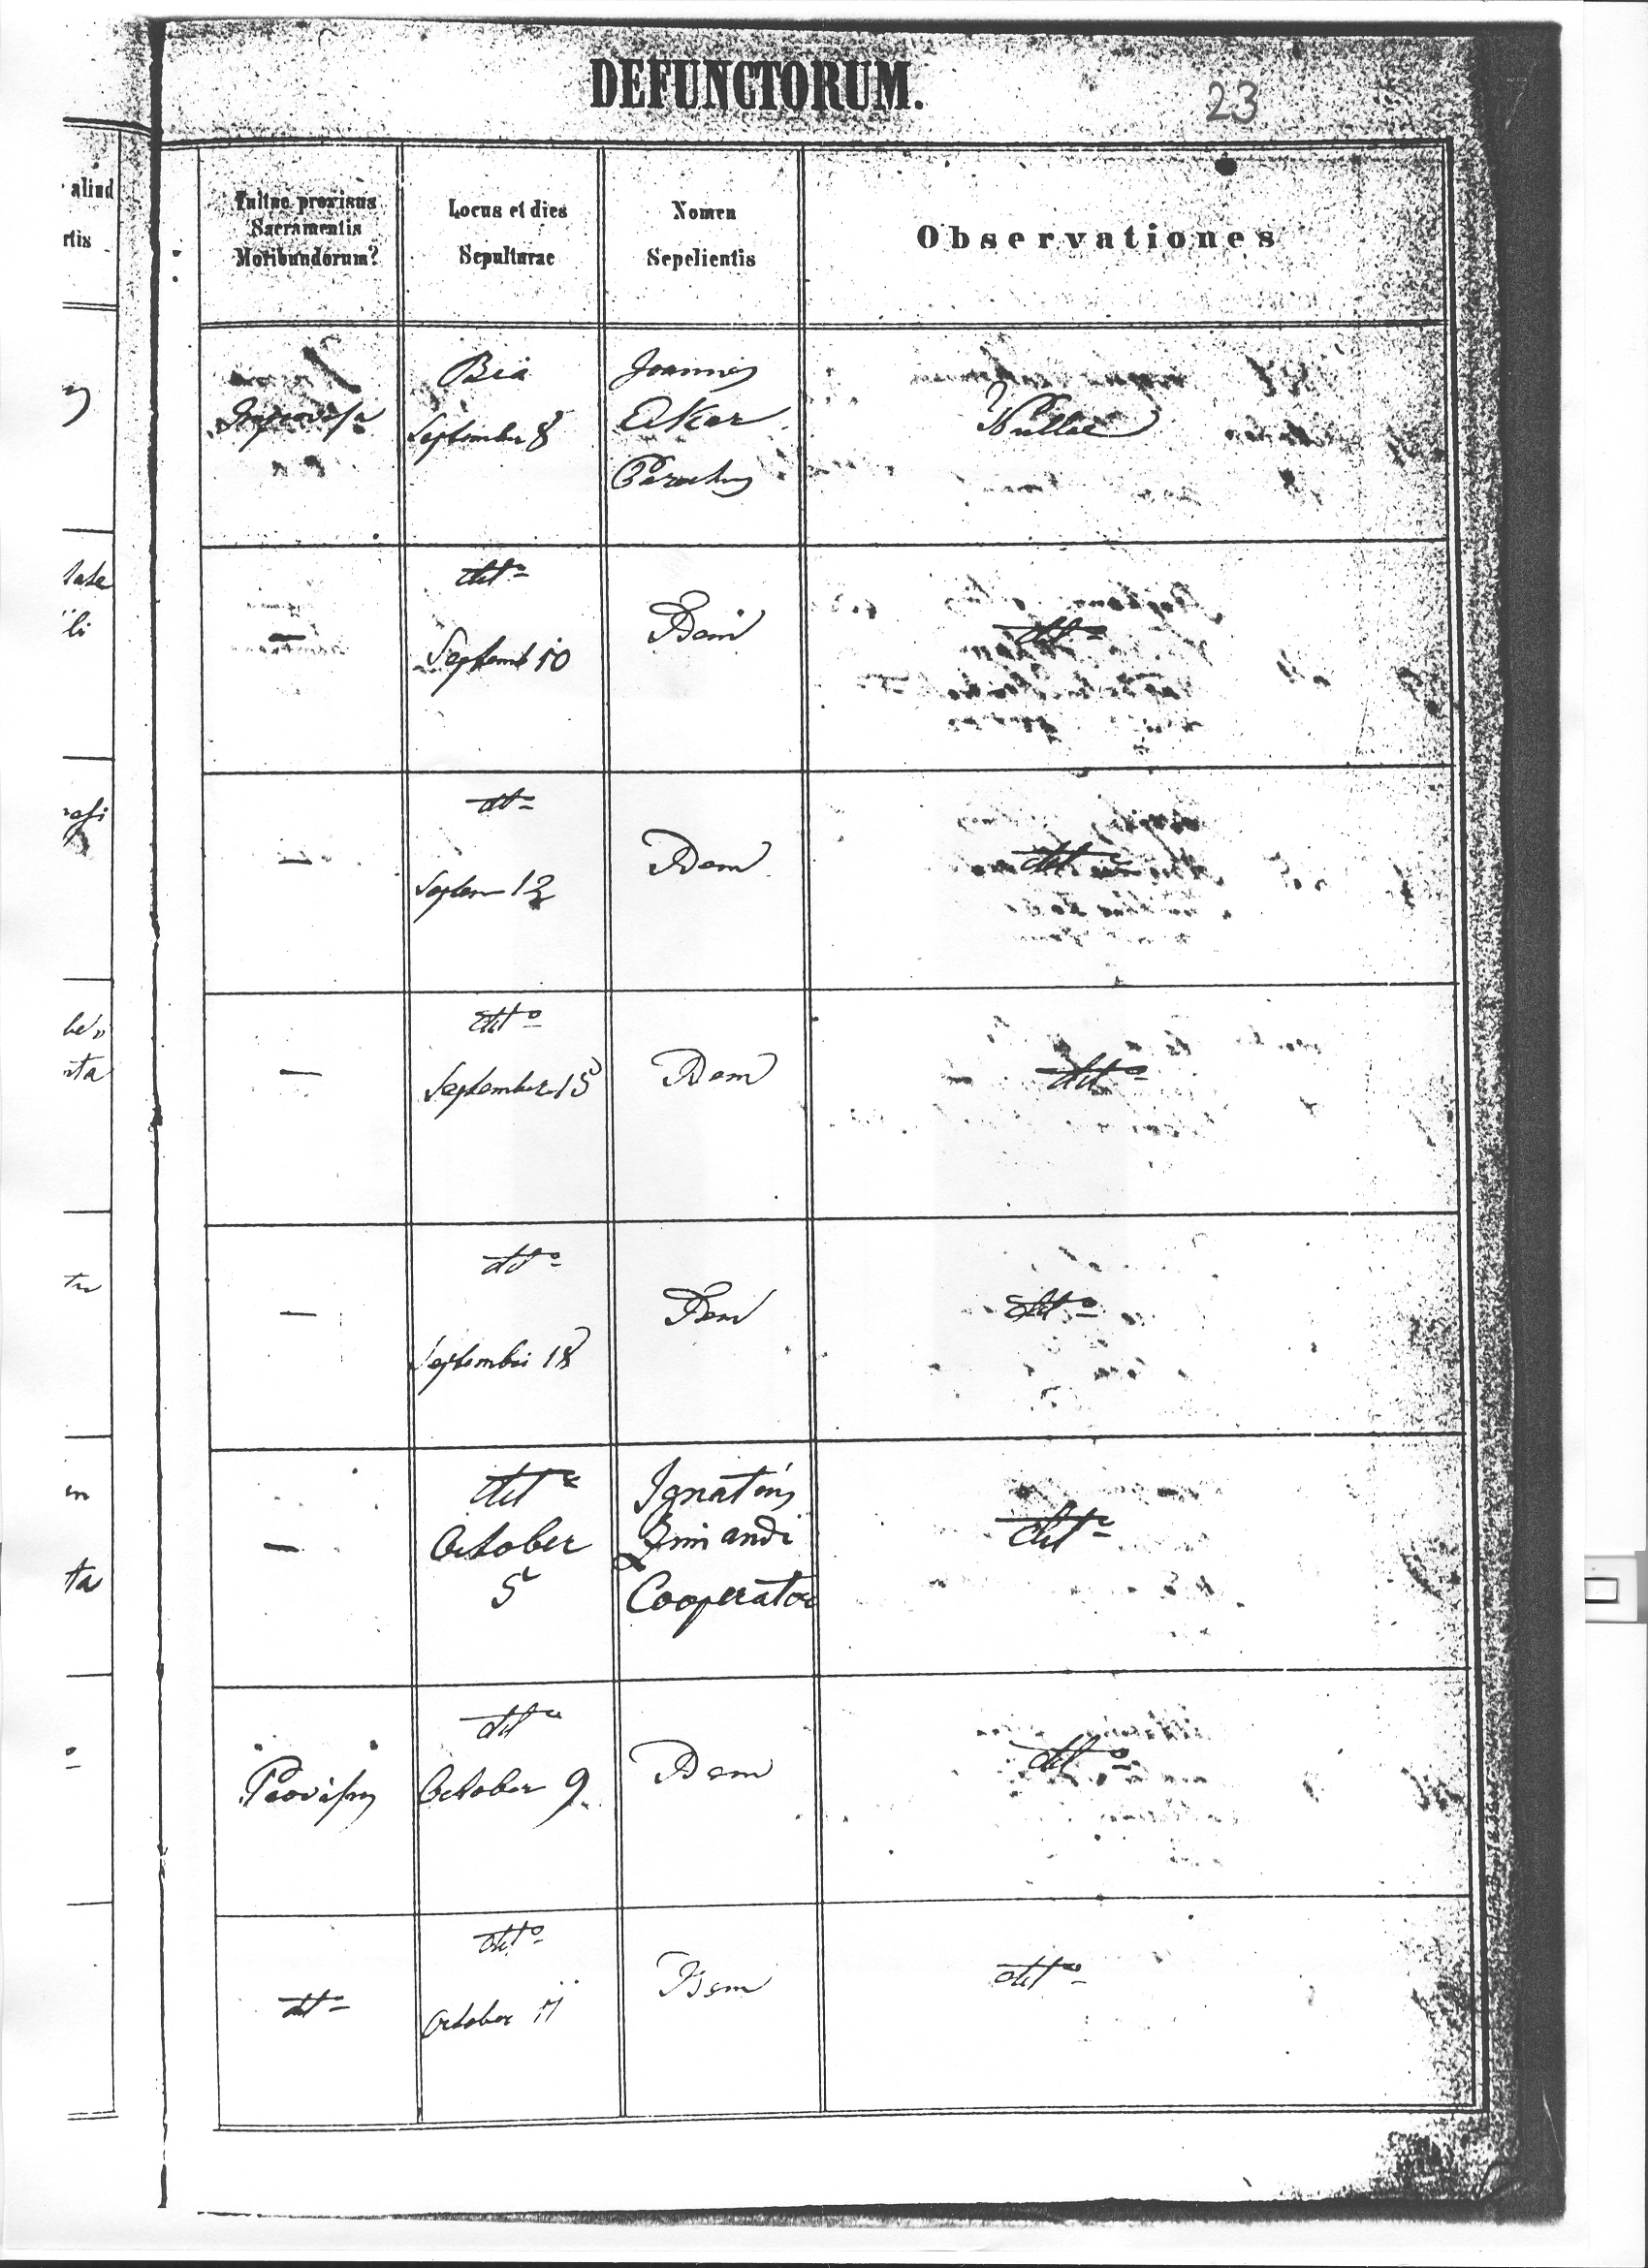 DEFUNCTORUM.
23
aliud
rtis
Fuitne provisus
Sacramentis
Moribundorum?
Locus et dies
Sepulturae
Nomen
Sepelientis
Observationes
Improvisa
Bia
September 8
Joannes
Parochus
Nullae
—
ditto
Septemb 10
Idem
ditto
—
ditto
Septem 12
Idem
ditto
—
ditto
September 15
Idem
ditto
—
ditto
Septembri 18
Idem
ditto
—
ditto
October
5
Ignatius
Cooperator
ditto
Provisus
ditto
October 9
Idem
ditto
ditto
ditto
October 11
Idem
ditto